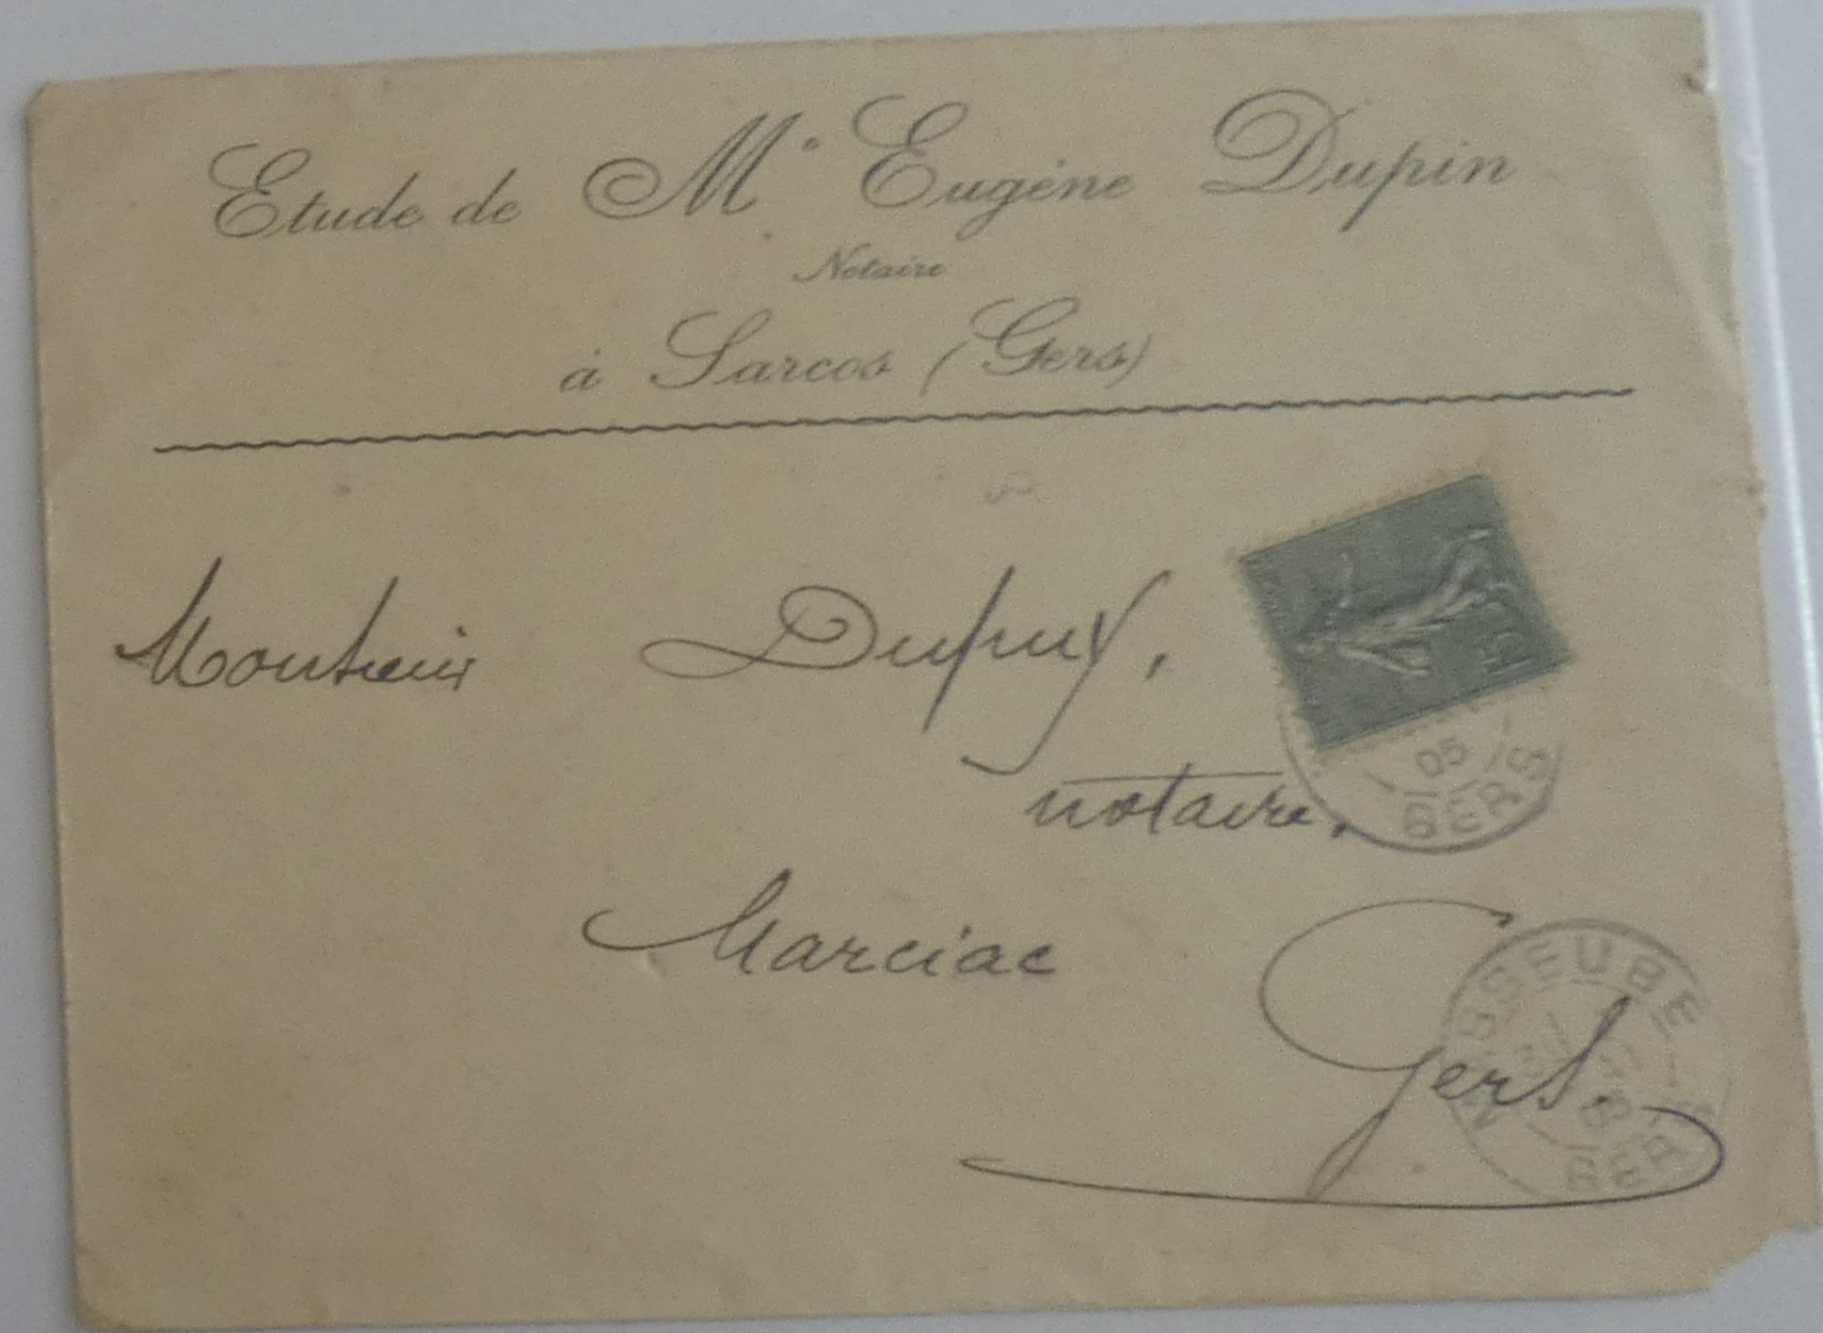 Etude de Me Eugène Dupin
Notaire
à Sarcos (Gers)
Monsieur Dupuy,
notaire,
Marciac
Gers.
05
GERS
MASSEUBE
GERS